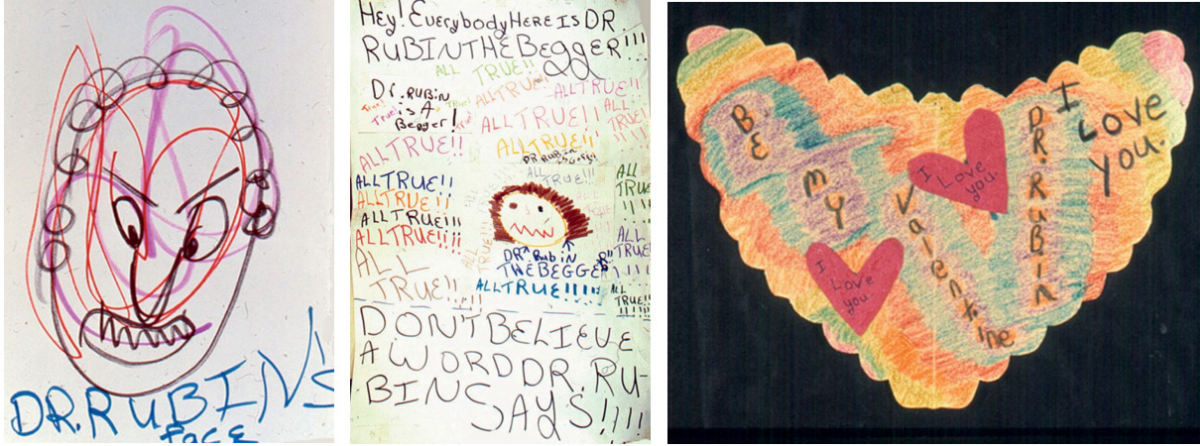 DR. RUBINS
face
Hey! EverybodyHERE IS DR.
RUBINTHEBEGGER!!!
ALL TRUE!!
Dr. RUBIN
is A
Begger!
True!
True!
ALLTRUE!!
ALLTRUE!!
ALLTRUE!!
ALL
TRUE!!
ALLTRUE!!
ALLTRUE!!
DR. RUBIN
ALLTRUE!!
ALLTRUE!!
ALLTRUE!!!
ALLTRUE!!!!
ALL
TRUE!!
ALL
TRUE
!!!!
ALL
TRUE
ALL
TRUE!!
DR. Rubin
THEBEGGER
ALLTRUE!!!!!
DONTBELIEVE
AWORDDR.RU-
BINSAYS!!!!
BE
MY
Valentine
DR. RUBIN
I
LOVE
you.
I Love
you.
I
Love
you.